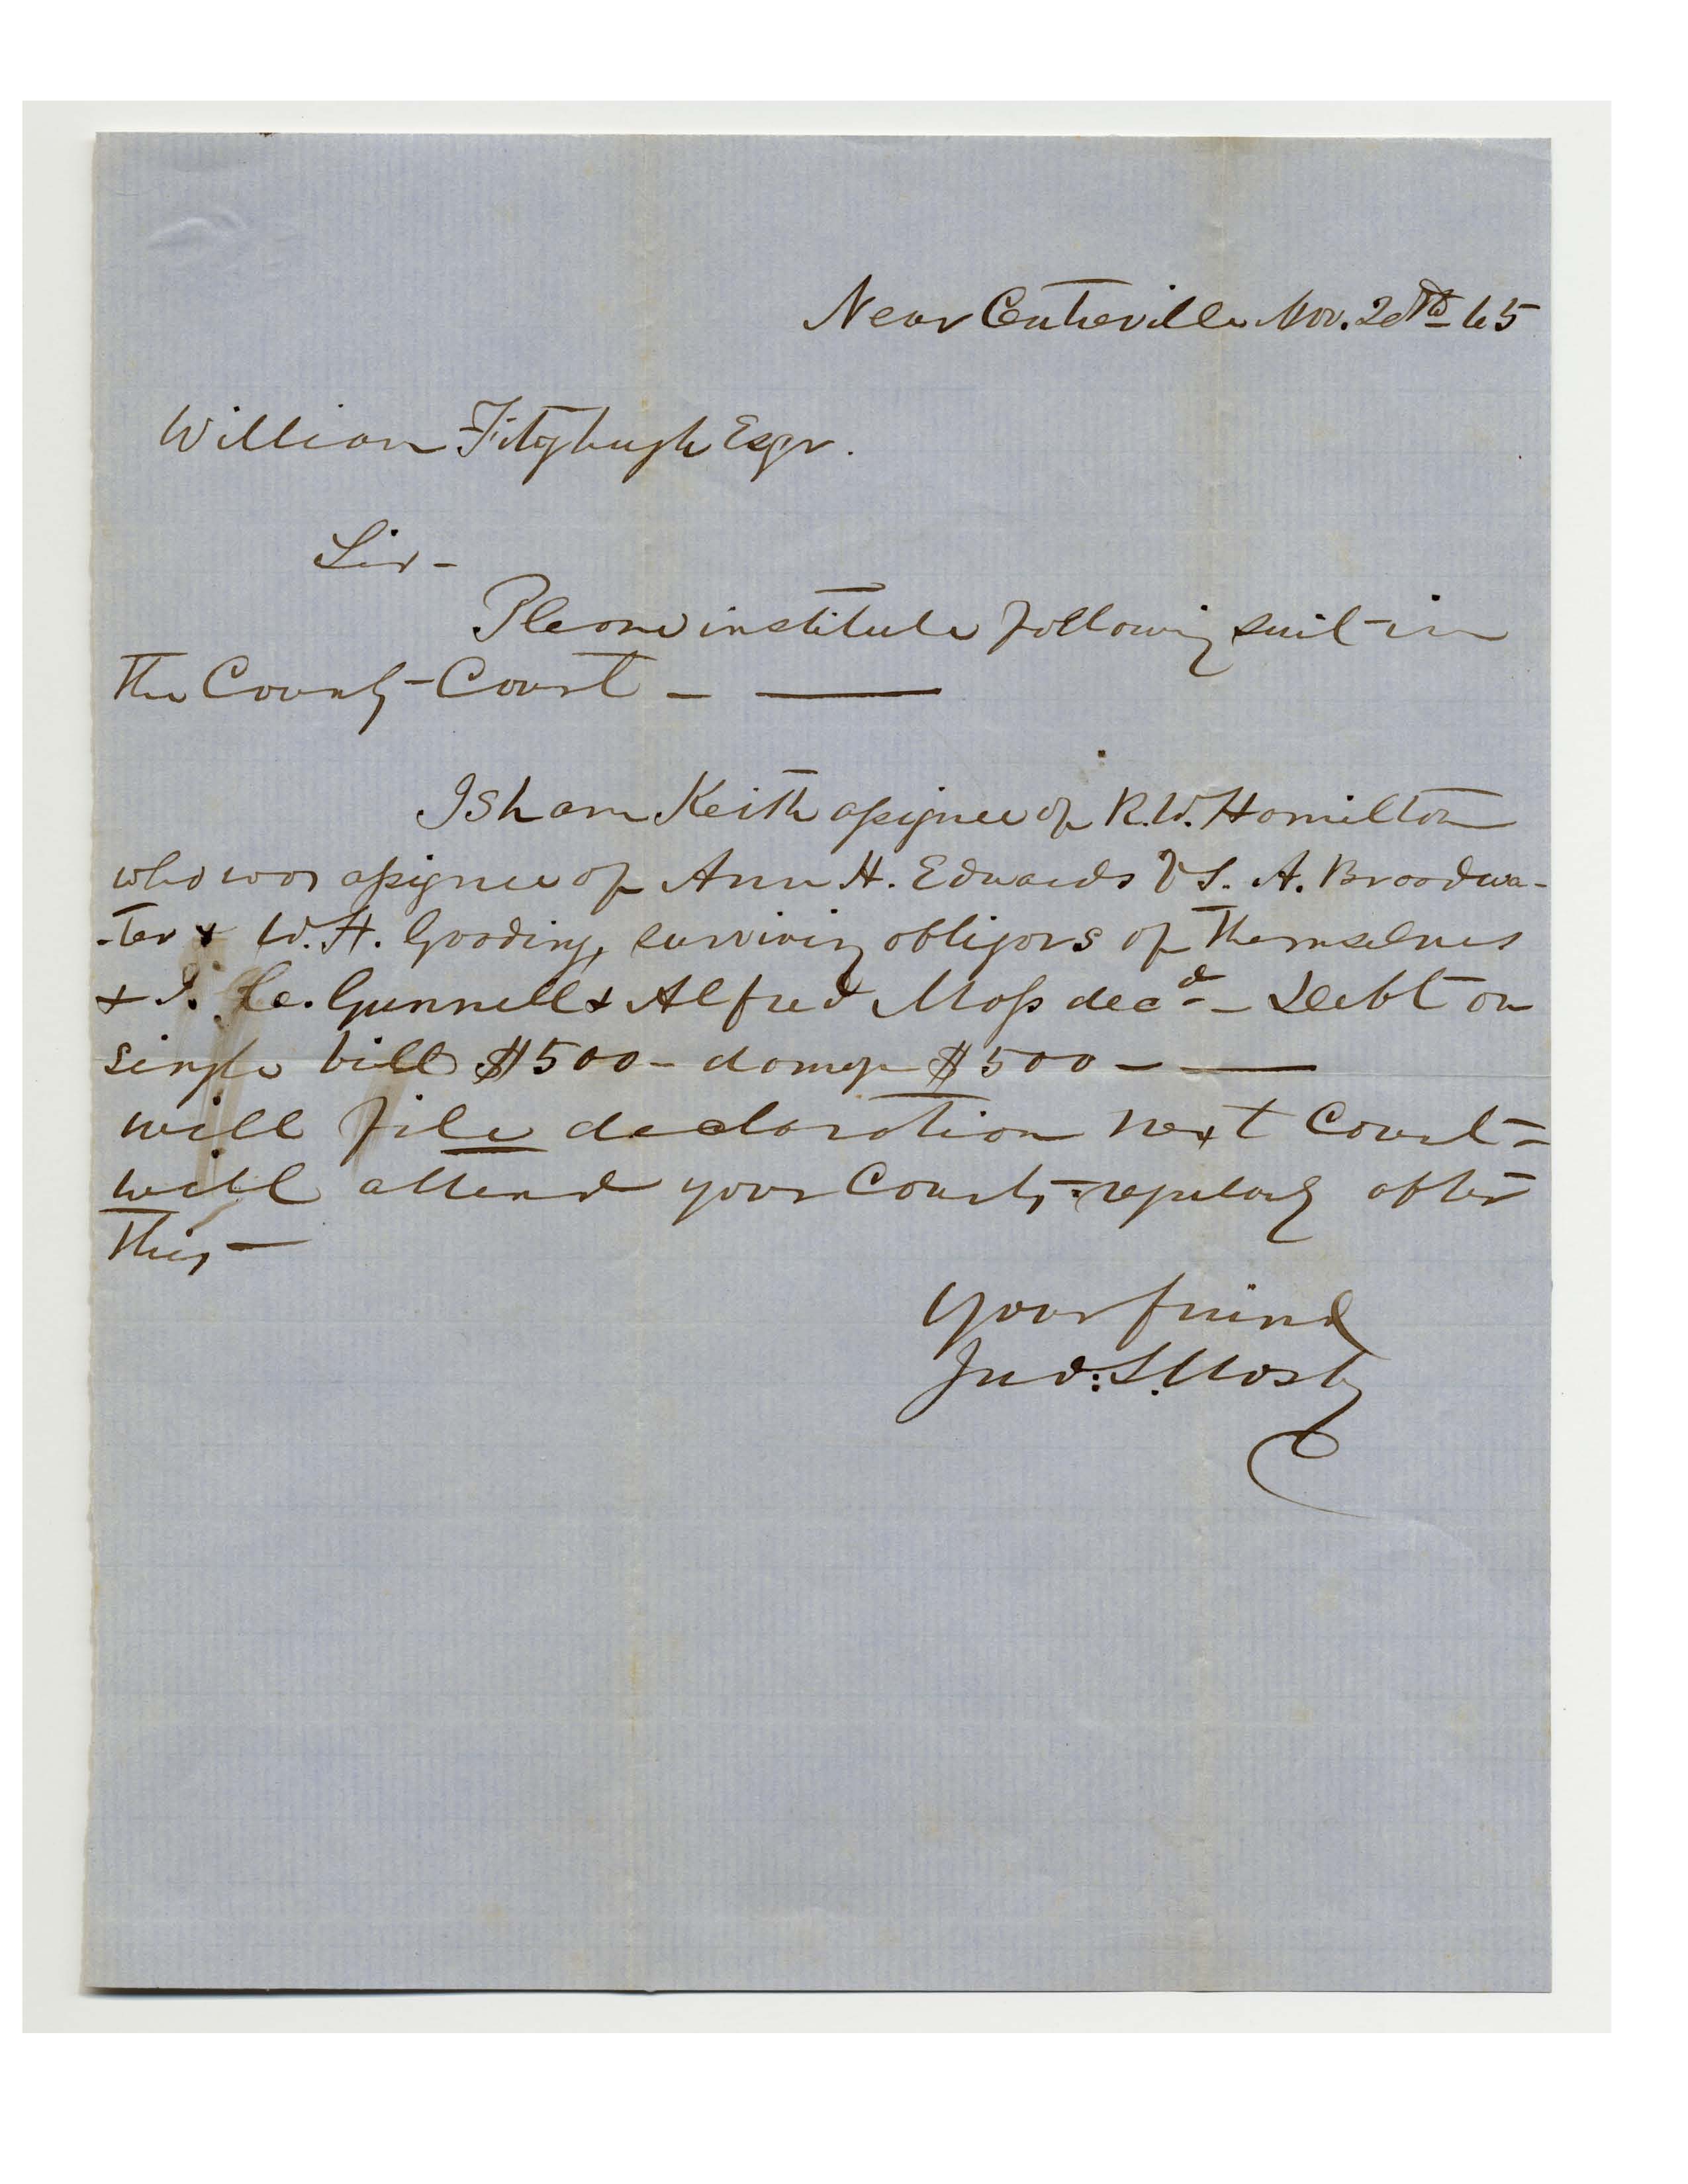 Near Centreville Nov. 20th 65
William Fitzhugh Esqr.
Sir-
Please institute following suit in
the County Court - —
Isham Keith assignee of R.W. Hamilton
who was assignee of Ann H. Edwards vs. A. Broadwa-
-ter & W.H. Gooding, surviving obligors of themselves
& Gunnell & Alfred Moss decd - Debt on
single bill $500 - damge $500 - —
will file declaration next Court -
will attend your Courts regularly after
this, —
Your friend
Jno: S. Mosby